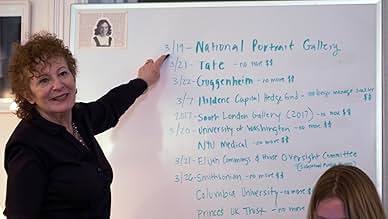 3/19 - National Portrait Gallery
3/21 - Tate - no more $$
3/22 - Guggenheim - no more $$
3/7 Hildene Capital Hedge Fund - no longer manage Sackler $$
2017 - South London Gallery (2017) - no more $$
3/20 - University of Washington - no more $$
NYU Medical - no more $$
3/21 - Elijah Cummings & House Oversight Committee
3/26 - Smithsonian - no more $$
Columbia University - no more $
Princes UK Trust - no more